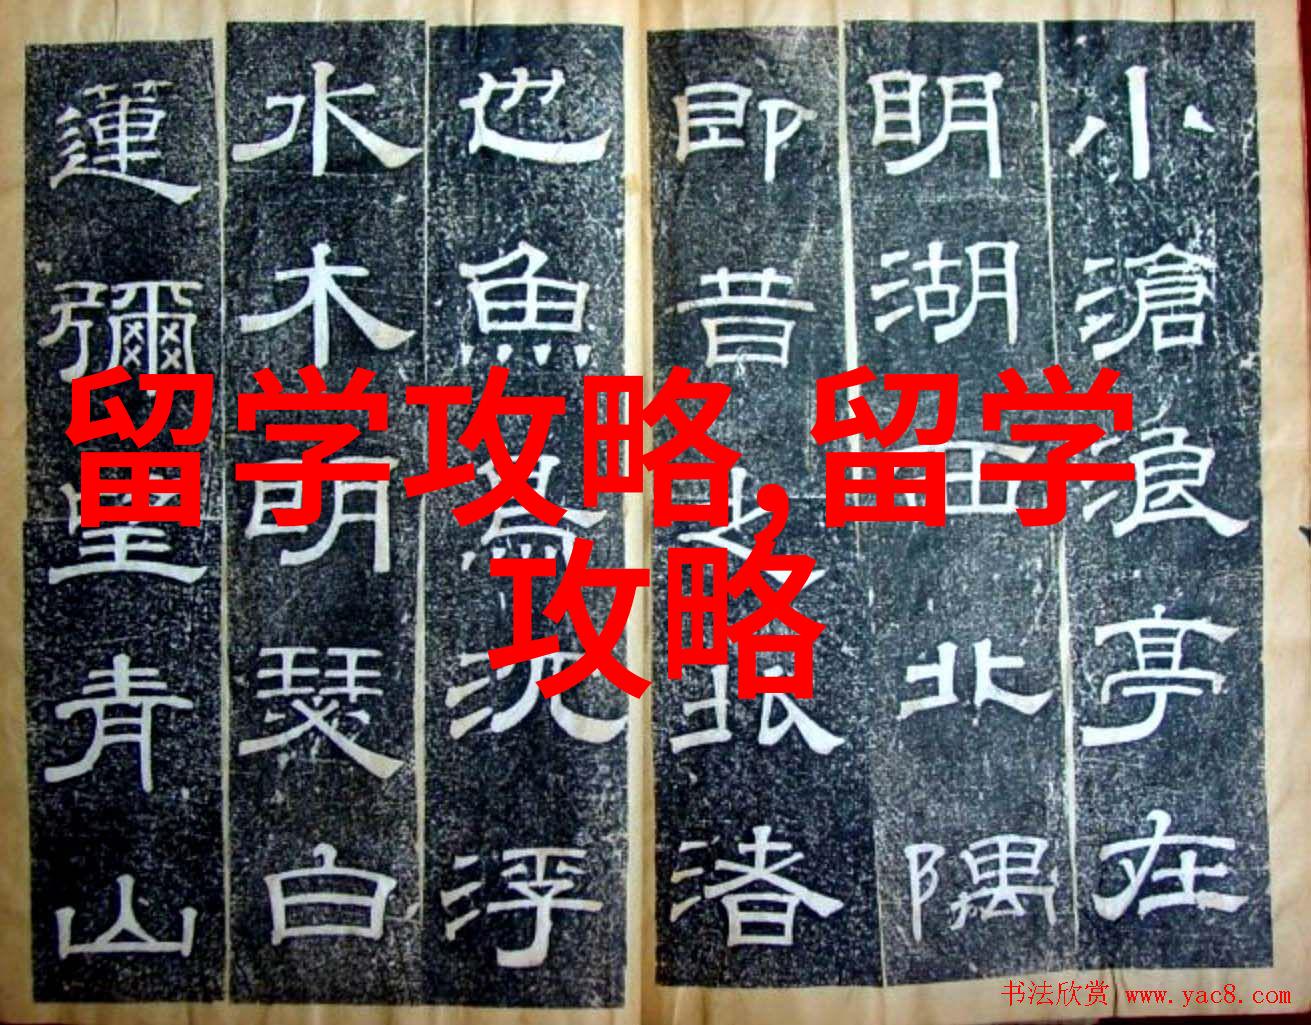 小滄浪亭在
明湖西北隅
即昔之北渚
也魚鳥沉浮
水木明瑟白
蓮彌望青山
留学攻略,留学
攻略
书法欣赏 www.yac8.com